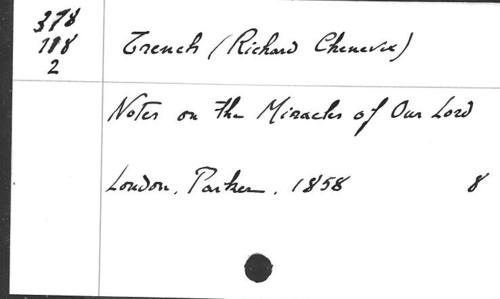 378
188
2
Trench (Richard Chenevix)
Notes on the Miracles of Our Lord
London, Parker, 1858 8